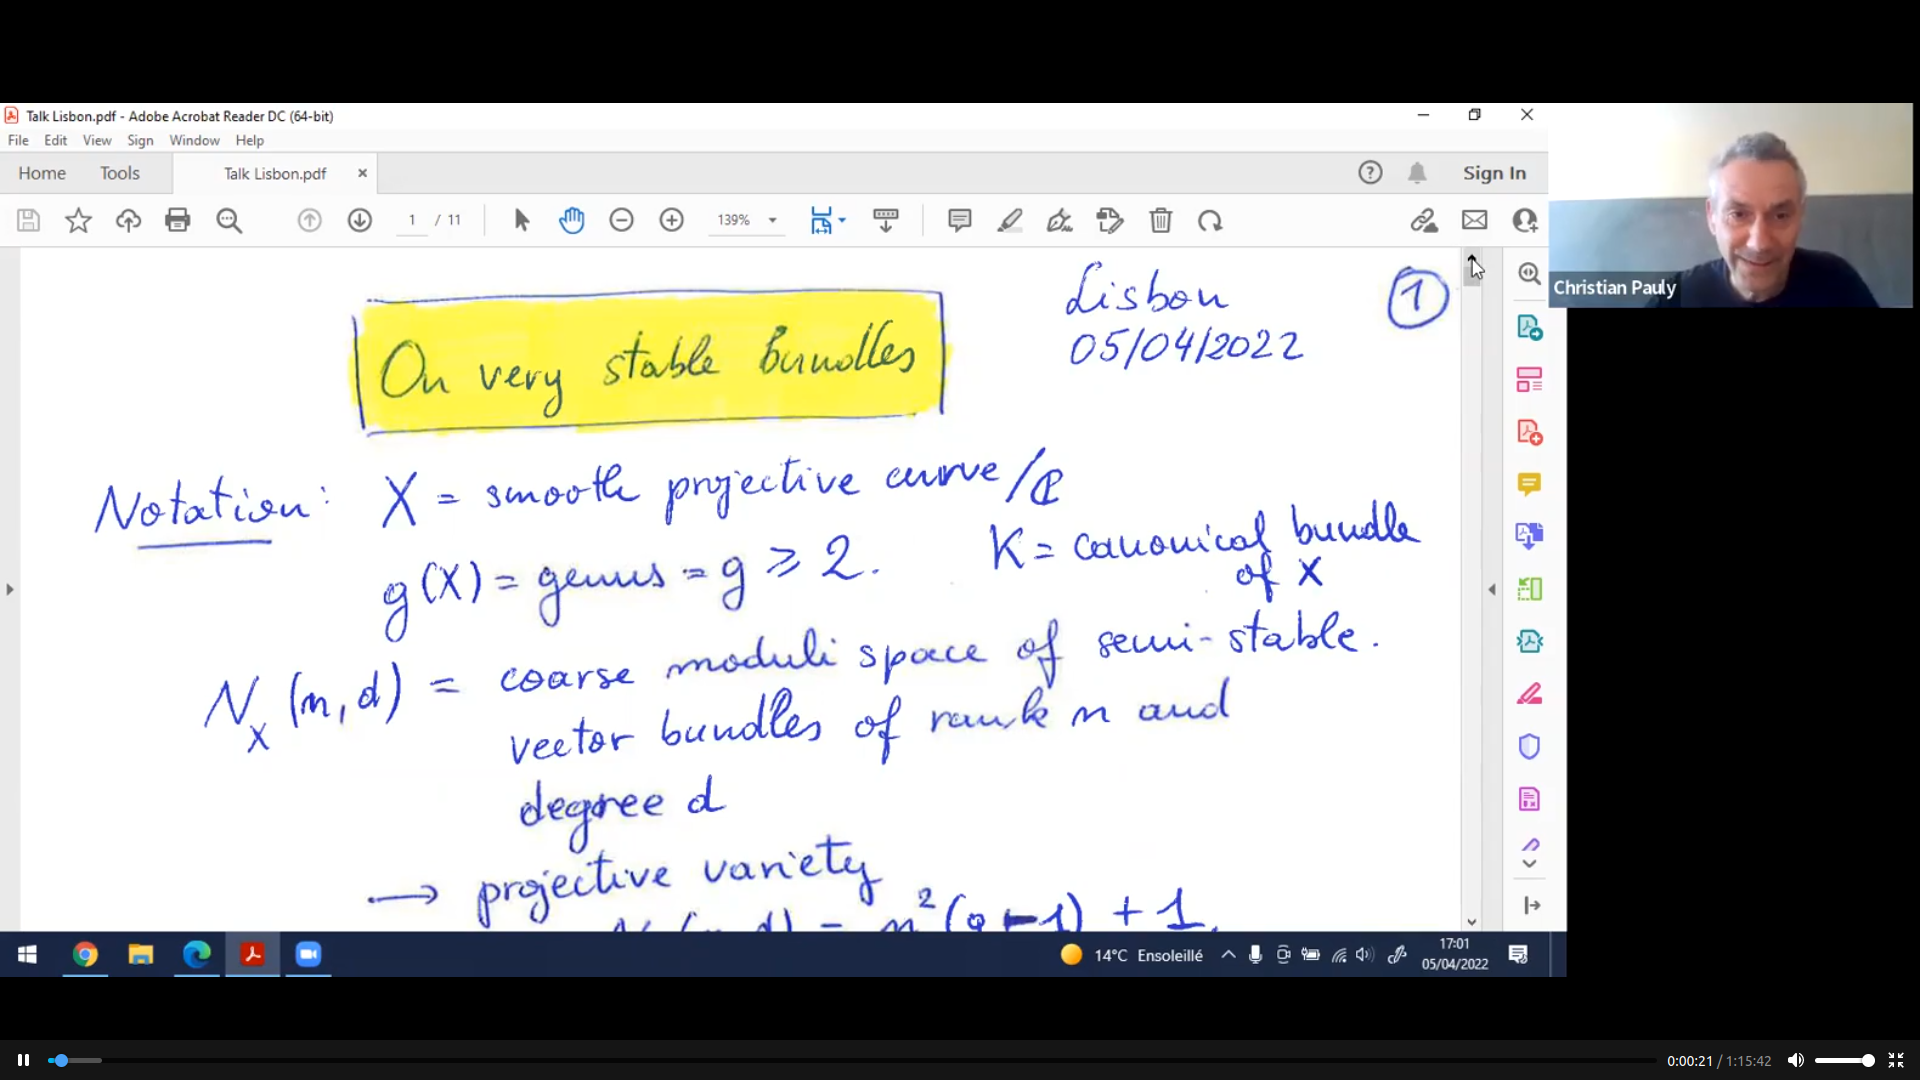 Talk Lisbon.pdf - Adobe Acrobat Reader DC (64-bit)
File Edit View Sign Window Help
Home Tools Talk Lisbon.pdf × Sign In
1 / 11 139%
Lisbon
05/04/2022
1
On very stable bundles
Notation: X = smooth projective curve / ℂ
g(X) = genus = g ⩾ 2. K = canonical bundle
of X
N_X (n, d) = coarse moduli space of semi-stable.
vector bundles of rank n and
degree d
→ projective variety
N (n, d) = n² (g-1) + 1.
Christian Pauly
14°C Ensoleillé
17:01
05/04/2022
0:00:21 / 1:15:42